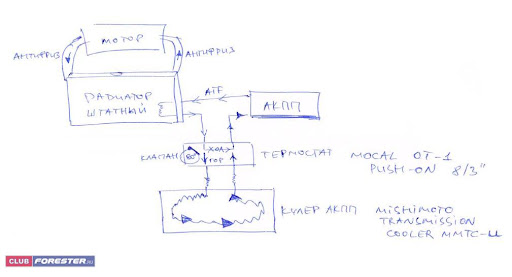 МОТОР
АНТИФРИЗ
АНТИФРИЗ
РАДИАТОР
ШТАТНЫЙ
ATF
АКПП
КЛАПАН
80°
ХОЛ
ГОР
ТЕРМОСТАТ MOCAL OT-1
PUSH-ON 8/3"
КУЛЕР АКПП MISHIMOTO
TRANSMISSION
COOLER MMTC-LL
CLUB FORESTER.RU